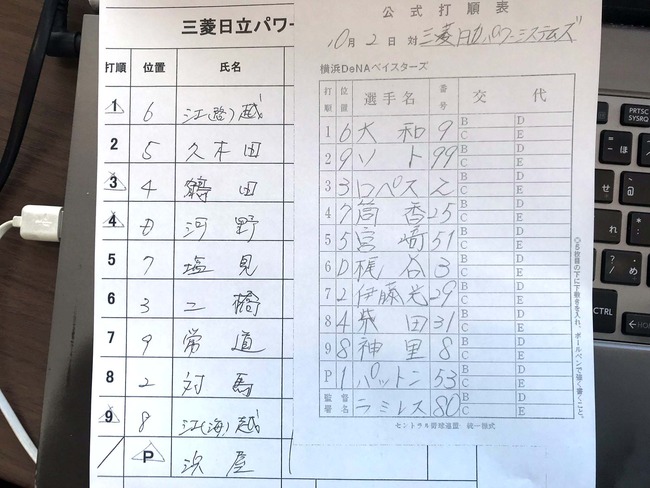 三菱日立パワー
打順 位置 氏名
1 6 江(路)越
2 5 久木田
3 4 鶴田
4 D 河野
5 7 塩見
6 3 二橋
7 9 常道
8 2 対馬
9 8 江(海)越
P 浜屋
公式打順表
10月2日 対 三菱日立パワーシステムズ
横浜DeNAベイスターズ
打順 位置 選手名 番号 交代
1 6 大和 9 B D C E
2 9 ソト 99 B D C E
3 3 ロペス 2 B D C E
4 7 筒香 25 B D C E
5 5 宮崎 51 B D C E
6 D 梶谷 3 B D C E
7 2 伊藤光 29 B D C E
8 4 柴田 31 B D C E
9 8 神里 8 B D C E
P 1 パットン 53 B D C E
監督署名 ラミレス 80 B D C E
セントラル野球連盟 統一様式
◎6枚目の下に下敷きを入れ、ボールペンで強く書くこと。
PRTSC
SYSRQ
CTRL